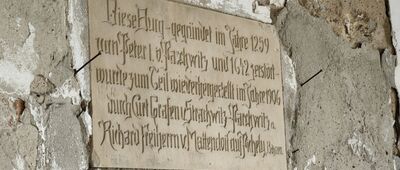 Diese Burg gegründet im Jahre 1299
von Peter I. v. Paschwitz und 1642 zerstört
wurde zum Teil wiederhergestellt im Jahre 1906
durch Carl Grafen v Strachwitz
Richard Freiherrn v Mattencloit auf